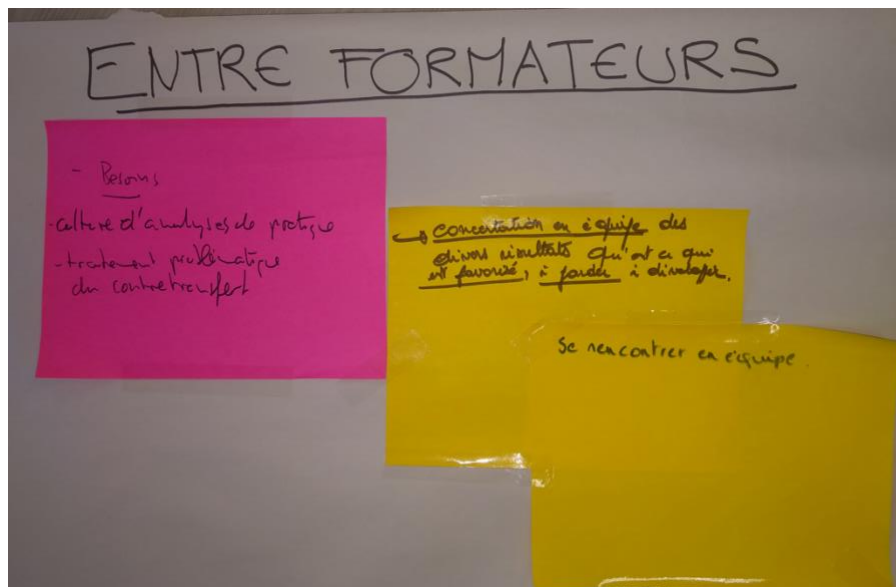 ENTRE FORMATEURS
- Besoins
- culture d'analyses de pratique
- traitement problématique
du contretransfert
→ concertation en équipe des
divers résultats qu'est ce qui
est favorisé, à garder à développer.
Se rencontrer en équipe.